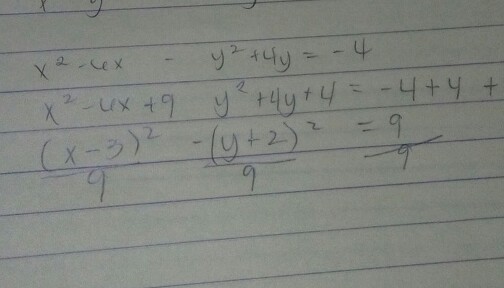 x² - 6x - y² + 4y = -4
x² - 6x + 9 y² + 4y + 4 = -4 + 4 +
(x - 3)² - (y + 2)² = 9
9 9 9